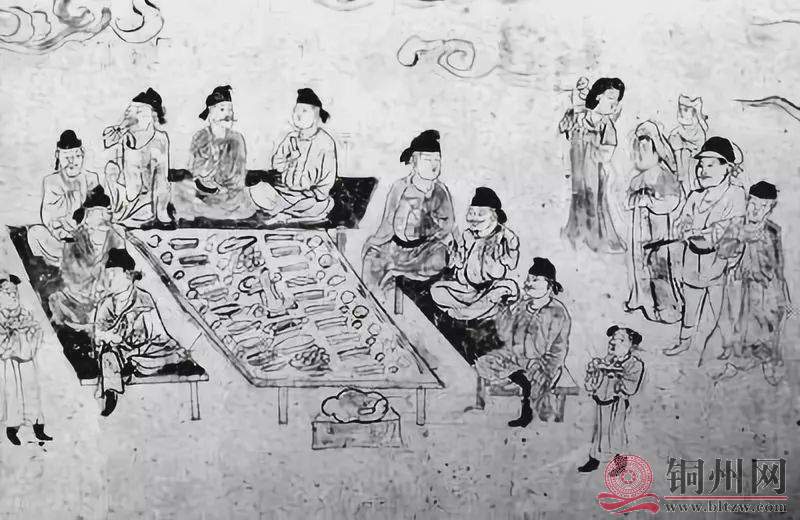 铜州网
www.bltzw.com